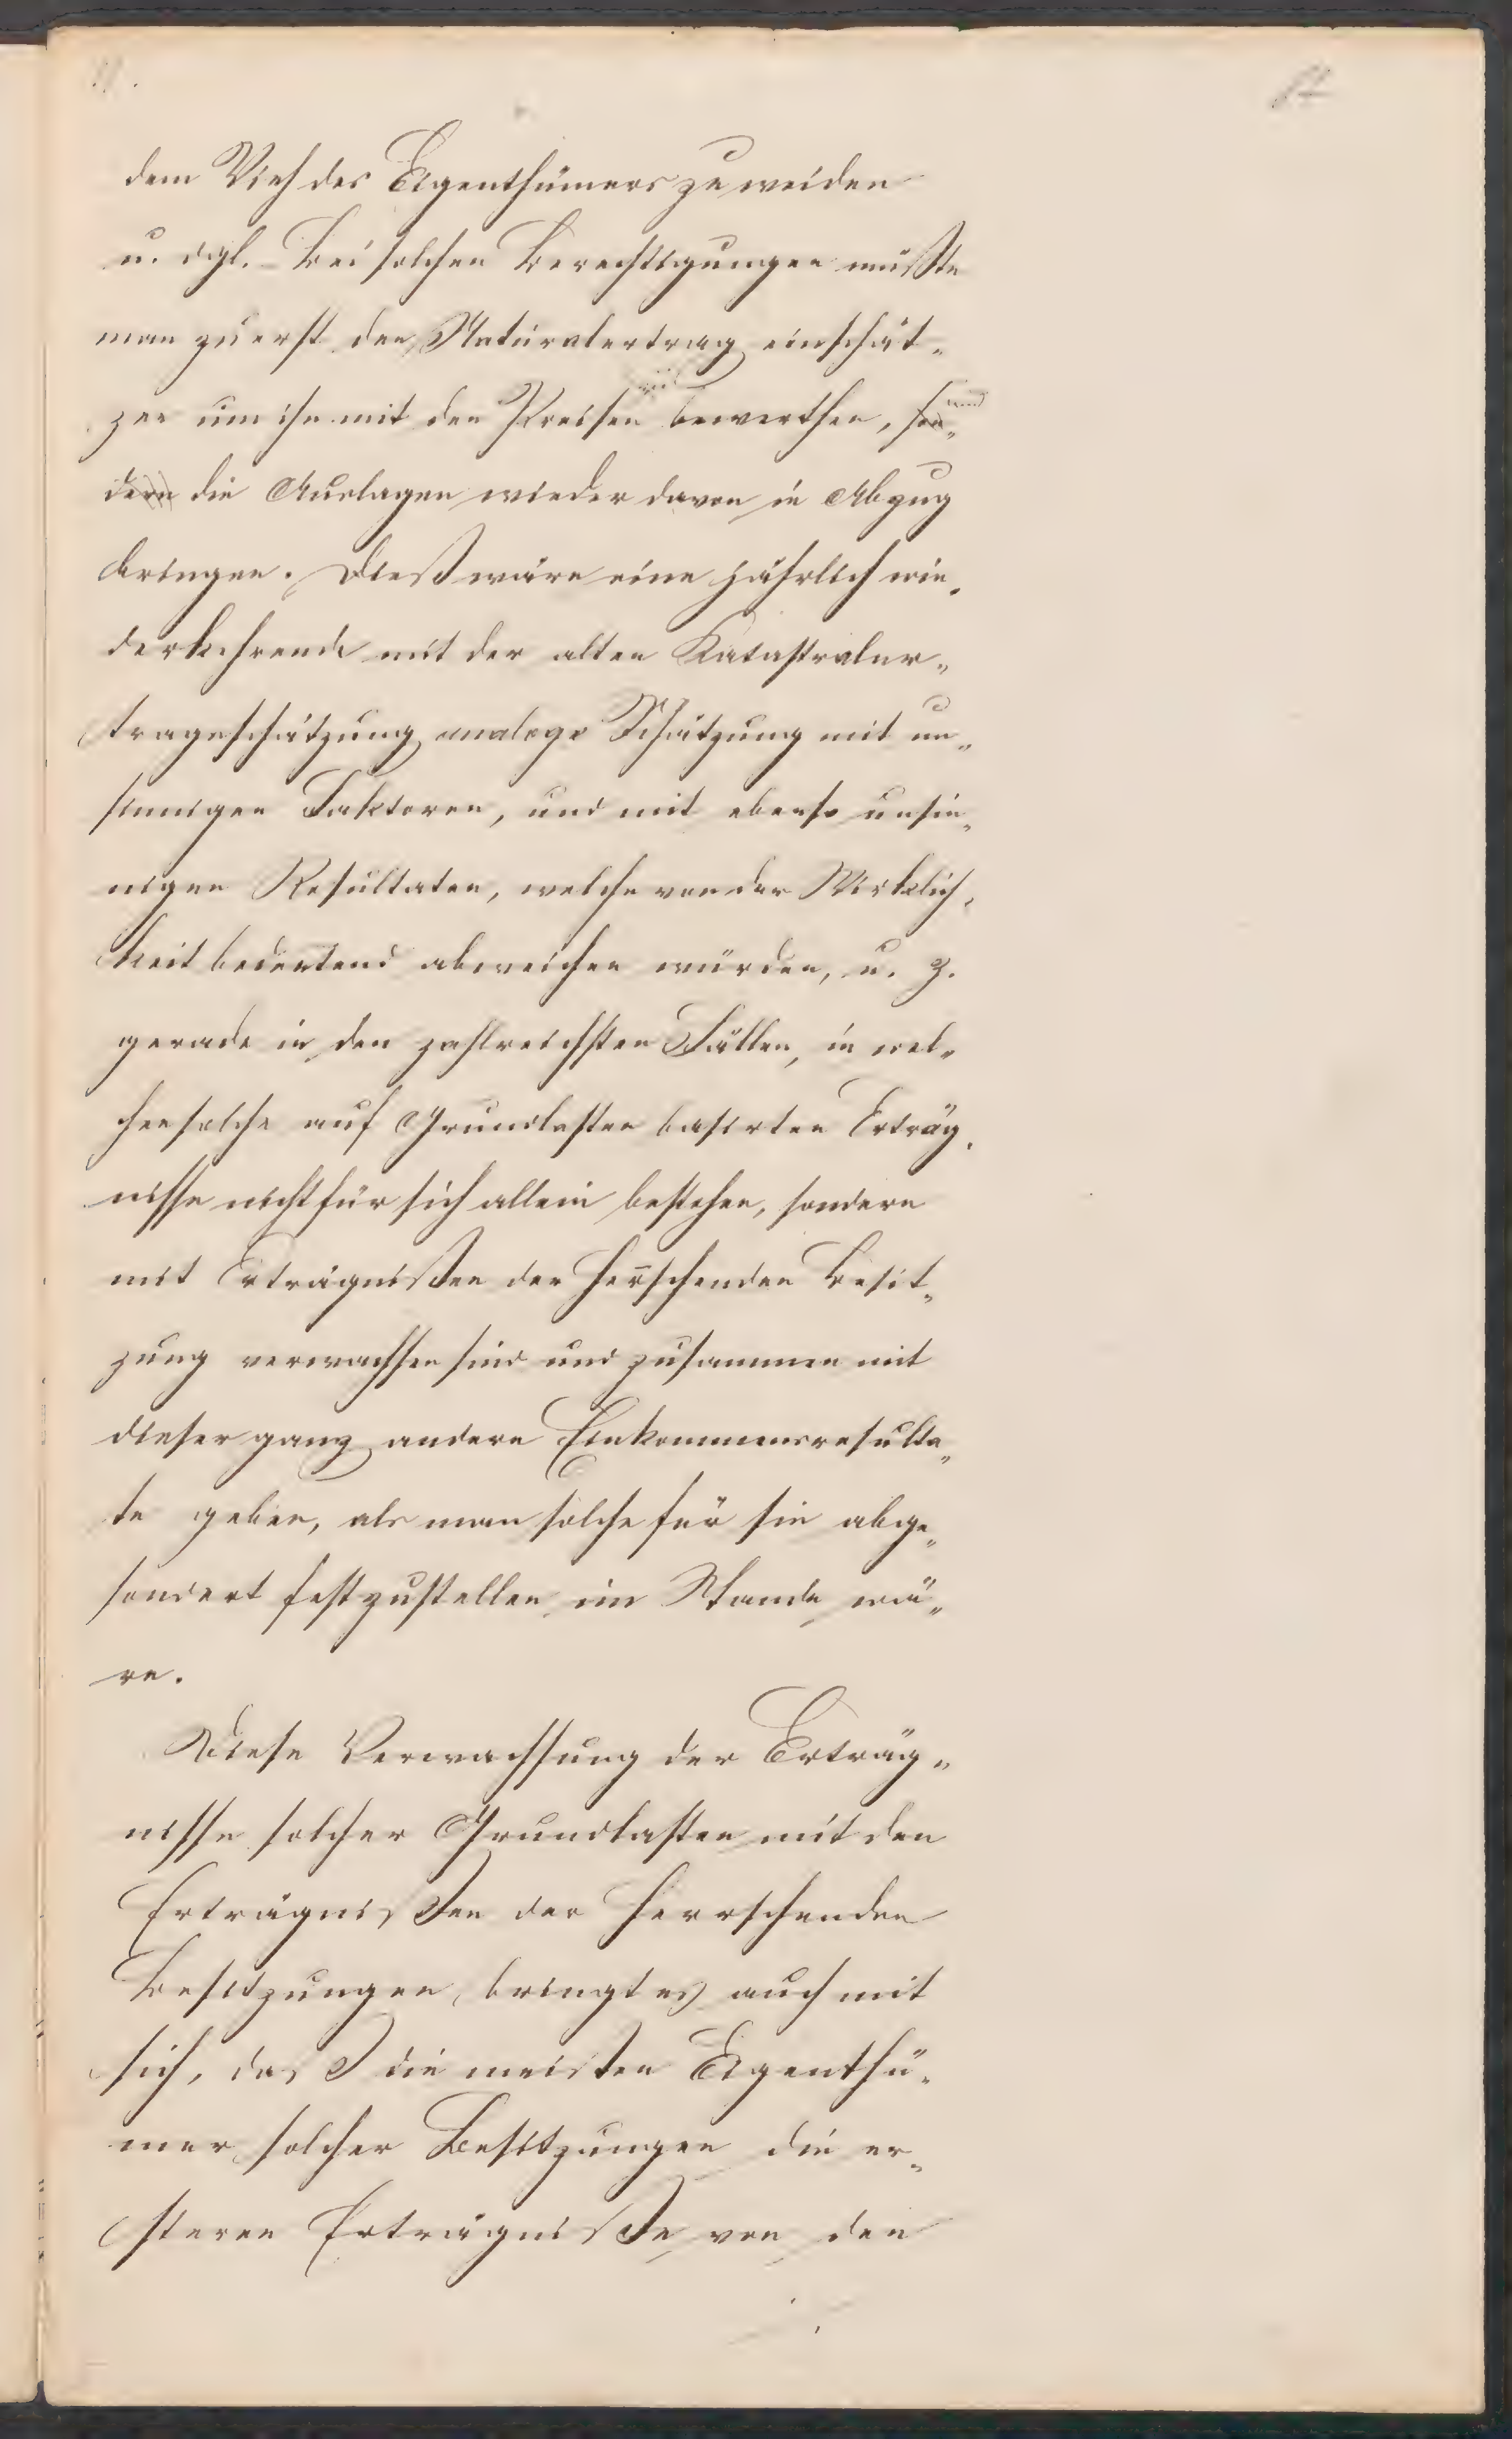 dem Vieh des Eigenthümers zu weiden
u. dgl. – Bei solchen Berechtigungen müßte
man zuerst den Naturalertrag einschät-
zen um ihn mit den Preisen bewerthen, son- und
dern die Auslagen wieder davon in Abzug
bringen. Dieß wäre eine jährlich wie-
derkehrende mit der alten Katastraler-
tragsschätzung analoge Schätzung mit un-
sinnigen Faktoren, und mit ebenso unsin-
nigen Resultaten, welche von der Wirklich-
keit bedeutend abweichen würden, u. z.
gerade in den zahlreichsten Fällen, in wel-
chen solche auf Grundlasten basirten Erträg-
nisse nicht für sich allein bestehen, sondern
mit Erträgnißen der herschenden Besit-
zung verwachsen sind und zusammen mit
dieser ganz andere Einkommensresulta-
te geben, als man solche für sie abge-
sondert festzustellen im Stande wä-
re.
Diese Verwachsung der Erträg-
nisse solcher Grundlasten mit den
Erträgnißen der herrschenden
Besitzungen, bringt es auch mit
sich, daß die meisten Eigenthü-
mer solcher Besitzungen die er-
steren Erträgniße von den